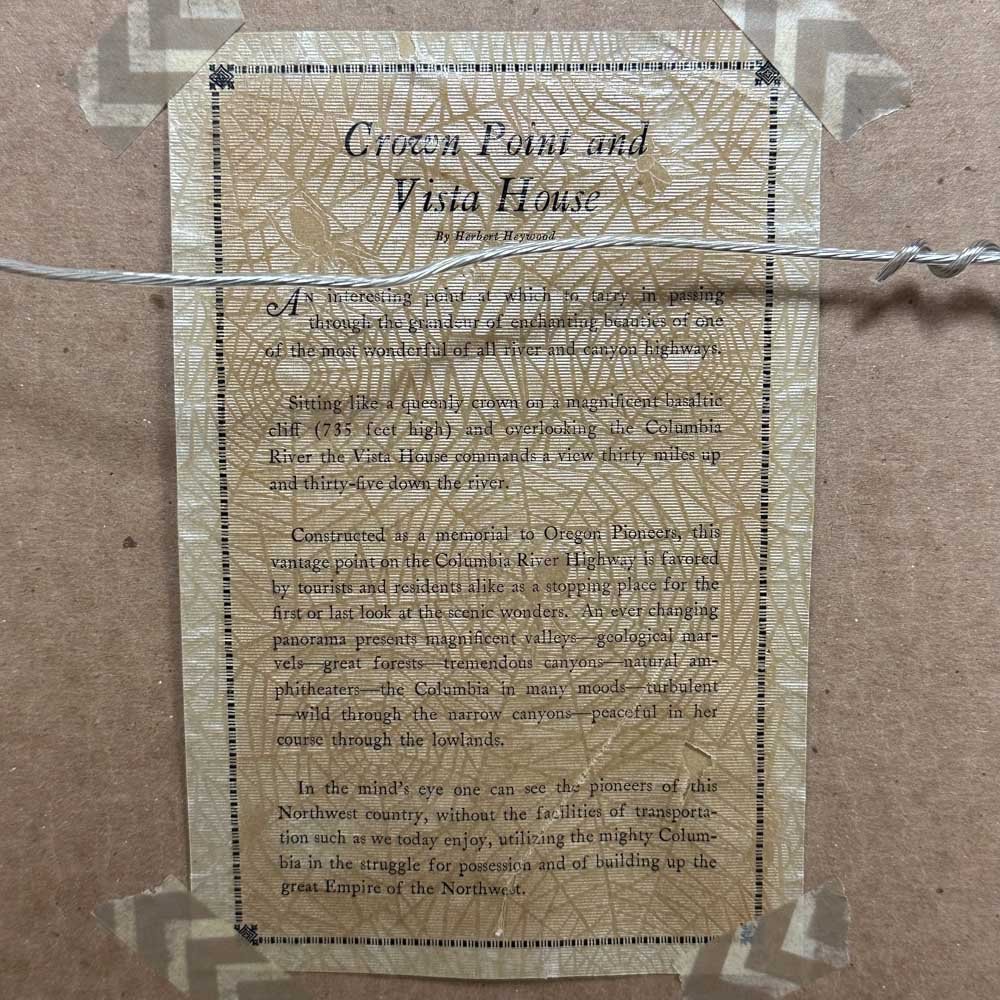 Crown Point and
Vista House
By Herbert Heywood
AN interesting point at which to tarry in passing
through the grandeur of enchanting beauties of one
of the most wonderful of all river and canyon highways.
Sitting like a queenly crown on a magnificent basaltic
cliff (735 feet high) and overlooking the Columbia
River the Vista House commands a view thirty miles up
and thirty-five down the river.
Constructed as a memorial to Oregon Pioneers, this
vantage point on the Columbia River Highway is favored
by tourists and residents alike as a stopping place for the
first or last look at the scenic wonders. An ever changing
panorama presents magnificent valleys—geological mar-
vels—great forests—tremendous canyons—natural am-
phitheaters—the Columbia in many moods—turbulent
—wild through the narrow canyons—peaceful in her
course through the lowlands.
In the mind's eye one can see the pioneers of this
Northwest country, without the facilities of transporta-
tion such as we today enjoy, utilizing the mighty Colum-
bia in the struggle for possession and of building up the
great Empire of the Northwest.